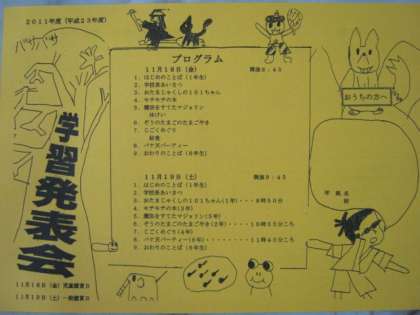 2011年度（平成23年度）
バサバサ
学習発表会
11月18日（金）児童鑑賞日
11月19日（土）一般鑑賞日
プログラム
11月18日（金） 開演9：45
1．はじめのことば（1年生）
2．学校長あいさつ
3．おたまじゃくしの101ちゃん
4．モチモチの木
5．魔法をすてたマジョリン
休けい
6．ぞうのたまごのたまごやき
7．じごくめぐり
昼食
8．バケ天パーティー
9．おわりのことば（6年生）
11月19日（土） 開演9：45
1．はじめのことば（1年生）
2．学校長あいさつ
3．おたまじゃくしの101ちゃん（1年）・・・9時50分
4．モチモチの木（3年）
5．魔法をすてたマジョリン（5年）
6．ぞうのたまごのたまごやき（2年）・・・10時55分ころ
7．じごくめぐり（4年）
8．バケ天パーティー（6年）・・・11時40分ころ
9．おわりのことば（6年生）
おうちの方へ
年 組 名
前